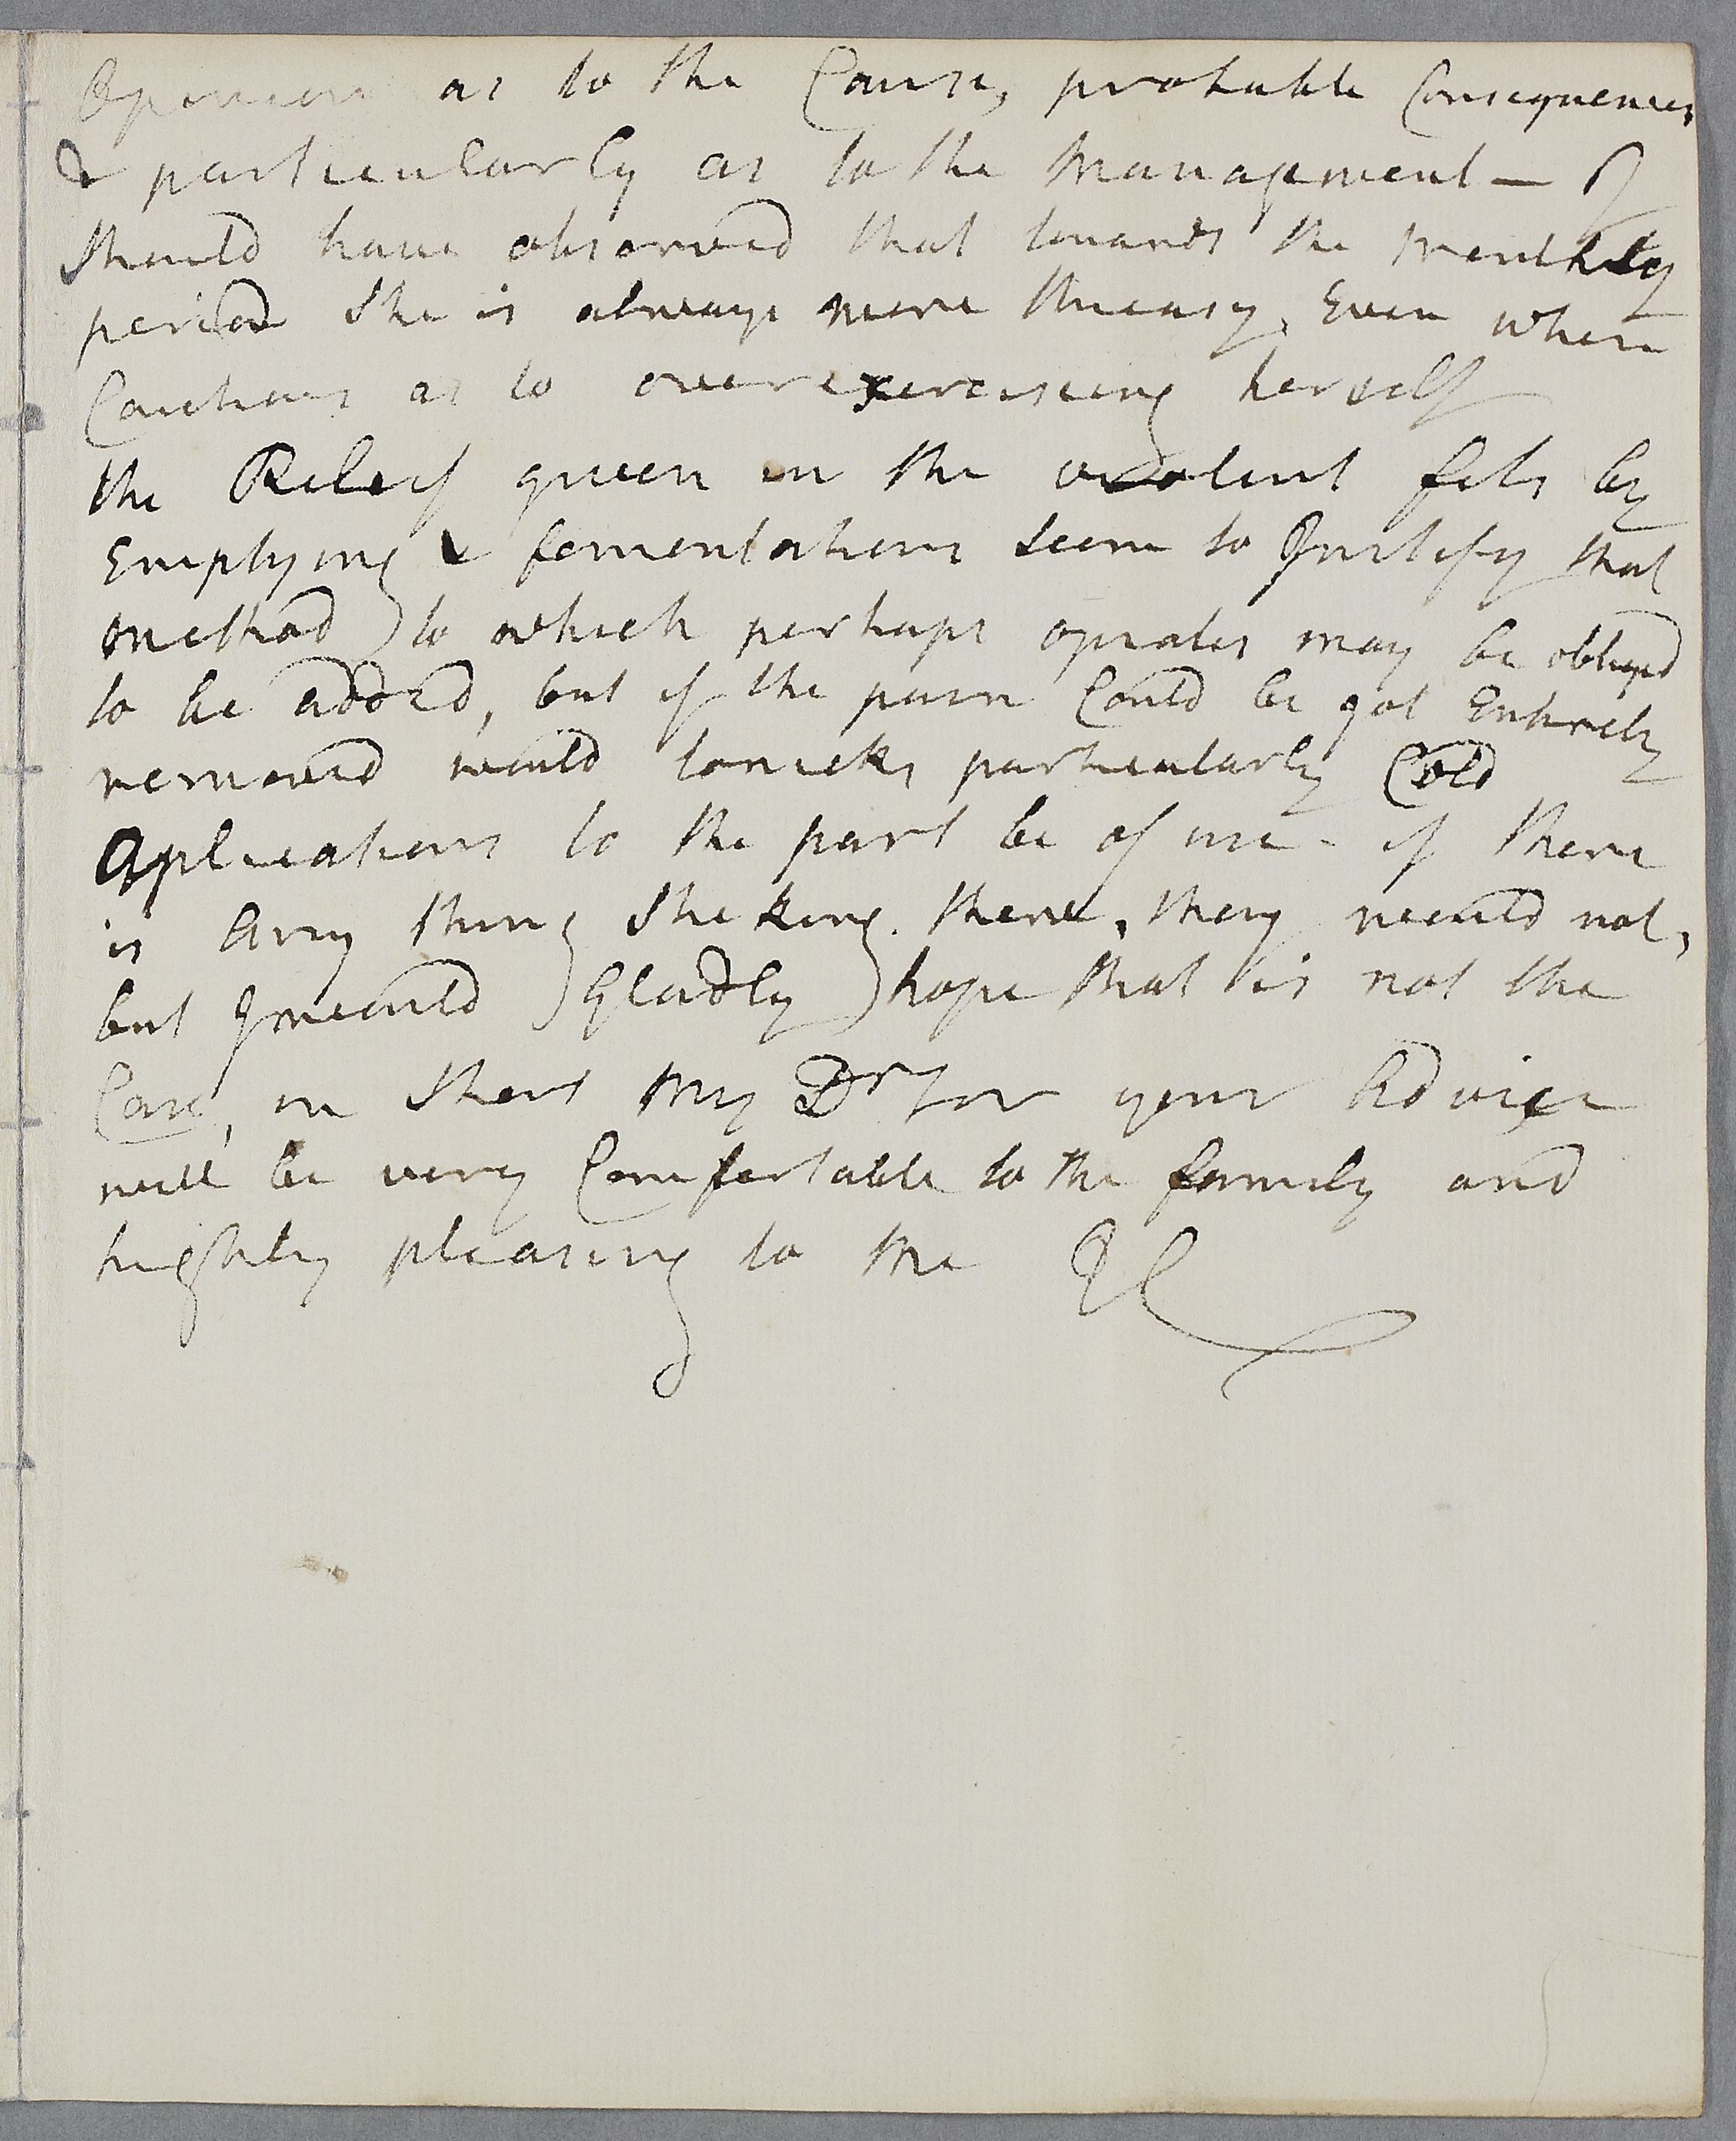 Opinion as to the Cause, probable Consequences
& particularly as to the Management — I
Should have observed that towards the monthly
period She is always more Uneasy, Even when
Cautious as to overexercising herself
the Releif given in the violent fits by
Emptying & fomentations seem to Justify that
method to which perhaps opiates may be obliged
to be added, but if the pain Could be got Entirely
removed would tonicks particularly Cold
Aplications to the part be of use - if there
is Any thing Sticking there, they would not,
but I would Gladly hope that is not the
Case, in Short My Dr Sir your Advice
will be very Comfortable to the family and
highly pleasing to me